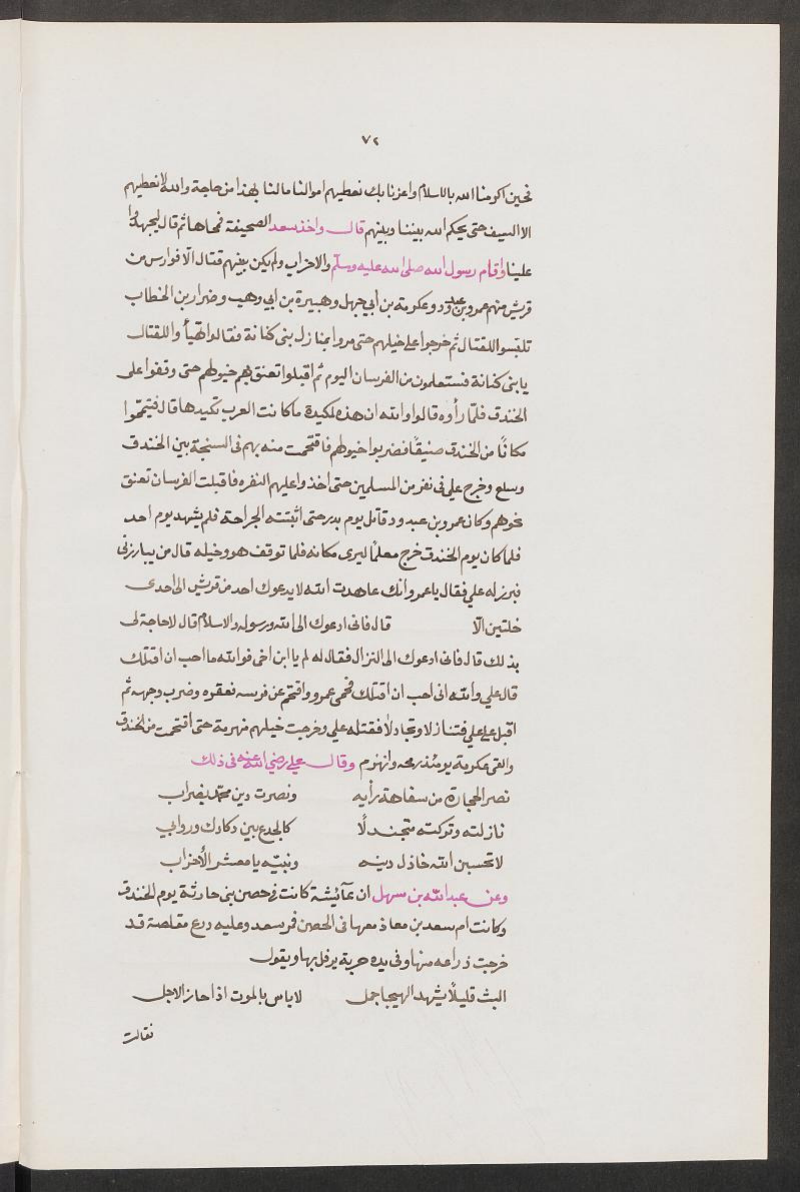 ٧٢
نحين اكرمنا الله بالاسلام واعزنا بك نعطيهم اموالنا مالنا بهذا من حاجة والله لا نعطيهم
الا السيف حتى يحكم الله بيننا وبينهم قال واخذ سعد الصحيفة فمحاها ثم قال ليجهدوا
علينا واقام رسول الله صلى الله عليه وسلم والاحزاب ولم يكن بينهم قتال الّا فوارس من
قريش منهم عمرو بن عبد ود وعكرمة بن أبي جهل وهبيرة بن ابي وهب وضرار بن الخطاب
تلبسوا للقتال ثم خرجوا على خيلهم حتى مروا بمنازل بنى كنانة فقالوا تهيأوا للقتال
يا بنى كنانة فستعلمون من الفرسان اليوم ثم اقبلوا تعنق بهم خيولهم حتى وقفوا على
الخندق فلمّا رأوه قالوا والله ان هذه لمكيدة ما كانت العرب تكيدها قال فتيمّموا
مكانًا من الخندق ضيقًا فضربوا خيولهم فاقتحمت منه بهم فى السبخة بين الخندق
وسلع وخرج علي فى نفر من المسلمين حتى اخذوا عليهم الثغره فاقبلت الفرسان تعنق
نحوهم وكان عمرو بن عبدود قاتل يوم بدر حتى اثبتته الجراحة فلم يشهد يوم احد
فلما كان يوم الخندق خرج معلمًا ليرى مكانه فلما توقف هو وخيله قال من يبارزنى
فبرز له علي فقال يا عمرو انك عاهدت الله لا يدعوك احد من قريش الى احدى
خلتين الّا قال فانى ادعوك الى الله ورسوله والاسلام قال لا حاجة لى
بذلك قال فانى ادعوك الى النزال فقال له لم يا ابن اخى فوالله ما احب ان اقتلك
قال علي والله انى احب ان اقتلك فحمى عمرو واقتحم عن فرسه فعقره وضرب وجهه ثم
اقبل على علي فتنازلا وتجادلا فقتله علي وخرجت خيلهم منهزمة حتى اقتحمت من الخندق
والقى عكرمة يومئذ رمحه وانهزم وقال علي رضي الله عنه فى ذلك
نصر الحجارة من سفاهة رأيه ونصرت دين محمد بضراب
نازلته وتركته متجندلًا كالجدع بين دكادك وروابي
لا تحسبن الله خاذل دينه ونبيّه يا معشر الأحزاب
وعن عبد الله بن سهل ان عآئيشة كانت فى حصن بنى حارثة يوم الخندق
وكانت ام سعد بن معاذ معها فى الحصن فمر سعد وعليه درع مقلصة قد
خرجت ذراعه منها وفى يده حربة يرفل بها ويقول
البث قليلًا يشهد الهيجا جمل لا باس بالموت اذا حاز الاجل
فقالت